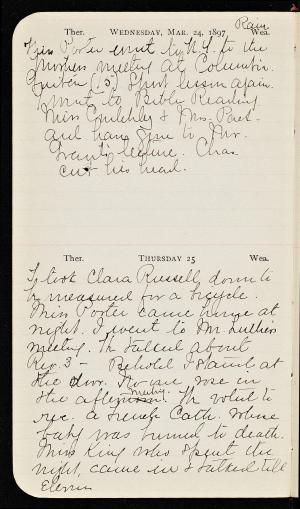 Rain
Ther. WEDNESDAY, MAR. 24, 1897 Wea.
Miss Porter went to N.Y. to the
Mothers meeting at Columbia.
(15) Short lesson again.
Went to Bible Reading
Miss & Mrs.
and have gone to Mr.
Grants lecture. Chas
cut his head.
Ther. THURSDAY 25 Wea.
I took Clara Russell down to
be measured for a bicycle.
Miss Porter came home at
night. I went to Mr. Luthers
meeting. He talked about
Rev. 3 - Behold I stand at
the door. No one rose in
the afternoon meeting. He went to
see a French Cath. whose
baby was burned to death.
Miss King who spent the
night, came in & talked till
Eleven